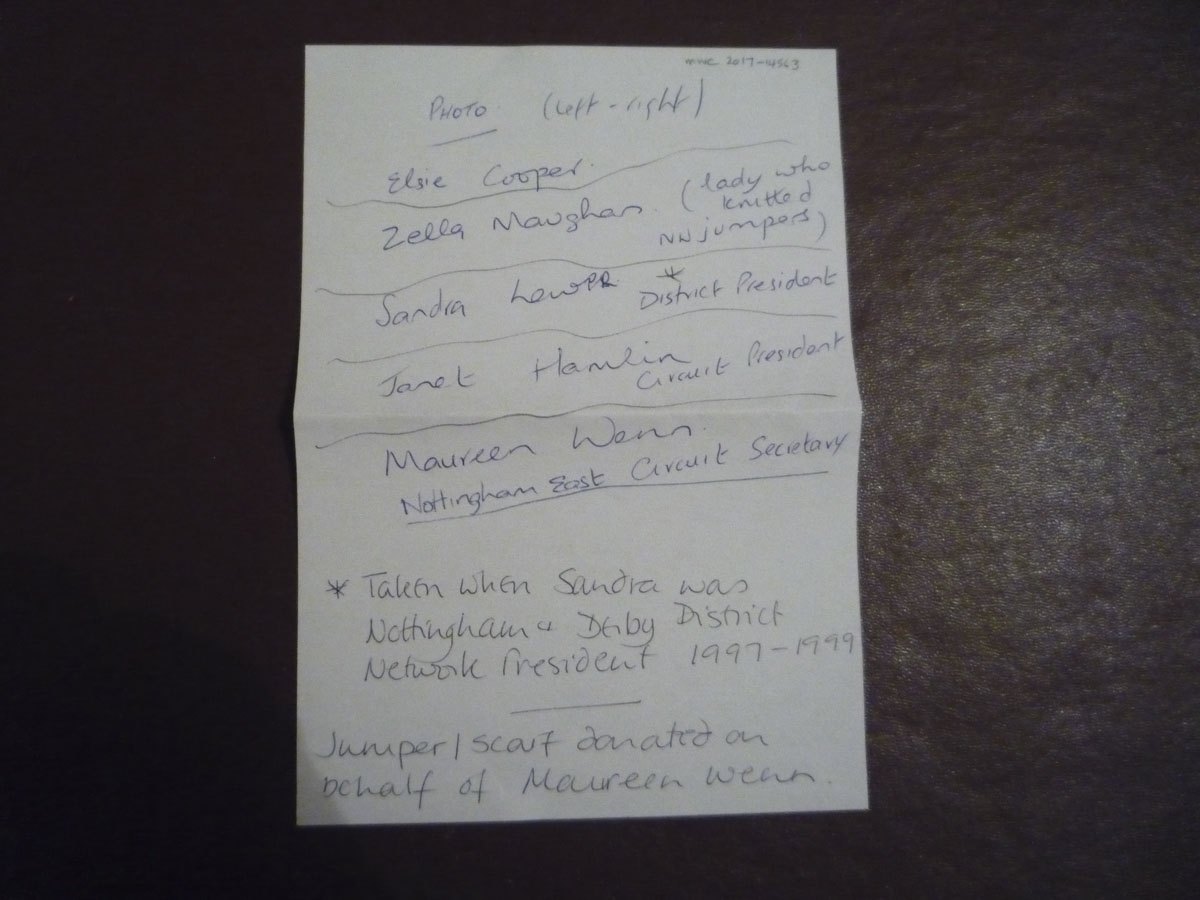 MWC 2017-14563
PHOTO (left-right)
Elsie Cooper.
Zella Maughan. (lady who
knitted
NW jumpers)
Sandra *
District President
Janet Hamlin
Circuit President
Maureen Wenn.
Nottingham East Circuit Secretary
* Taken when Sandra was
Nottingham & Derby District
Network President 1997-1999
Jumper/scarf donated on
behalf of Maureen Wenn.